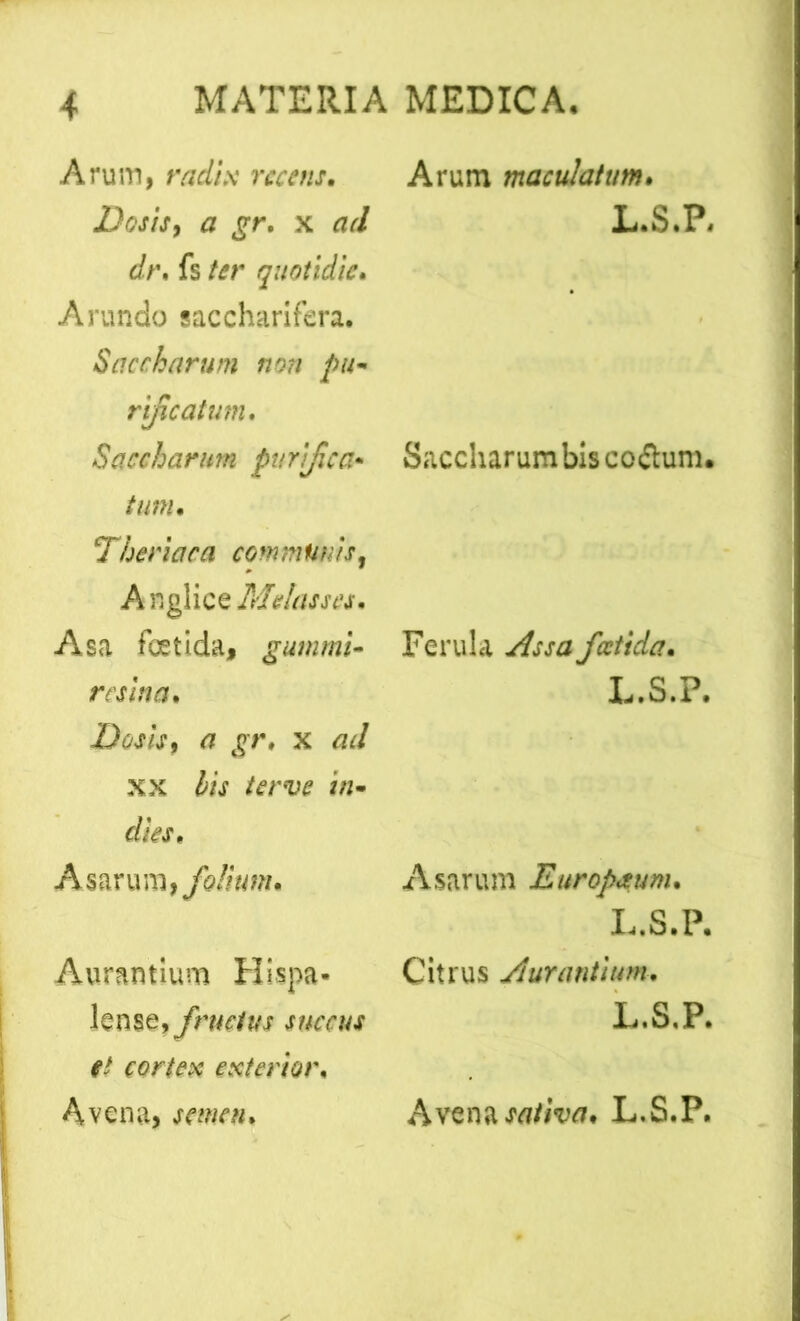 4 MATERIA MEDICA.
Arum, radix recens. Arum maculatum.
Dosis, a gr. x ad L.S.P.
dr. ſs ter quotidie.
Arundo saccharifera.
Saccharum non pu-
rificatum.
Saccharum purifica- Saccharum bis coctum.
tum.
Theriaca communis,
Anglice Melasses.
Asa fœtida, gummi- Ferula Assa fœtida.
resina. L.S.P.
Dosis, a gr. x ad
xx bis terve in-
dies.
Asarum, folium. Asarum Europæum.
L.S.P.
Aurantium Hispa- Citrus Aurantium.
lense, fructus succus L.S.P.
et cortex exterior.
Avena, semen. Avena sativa. L.S.P.